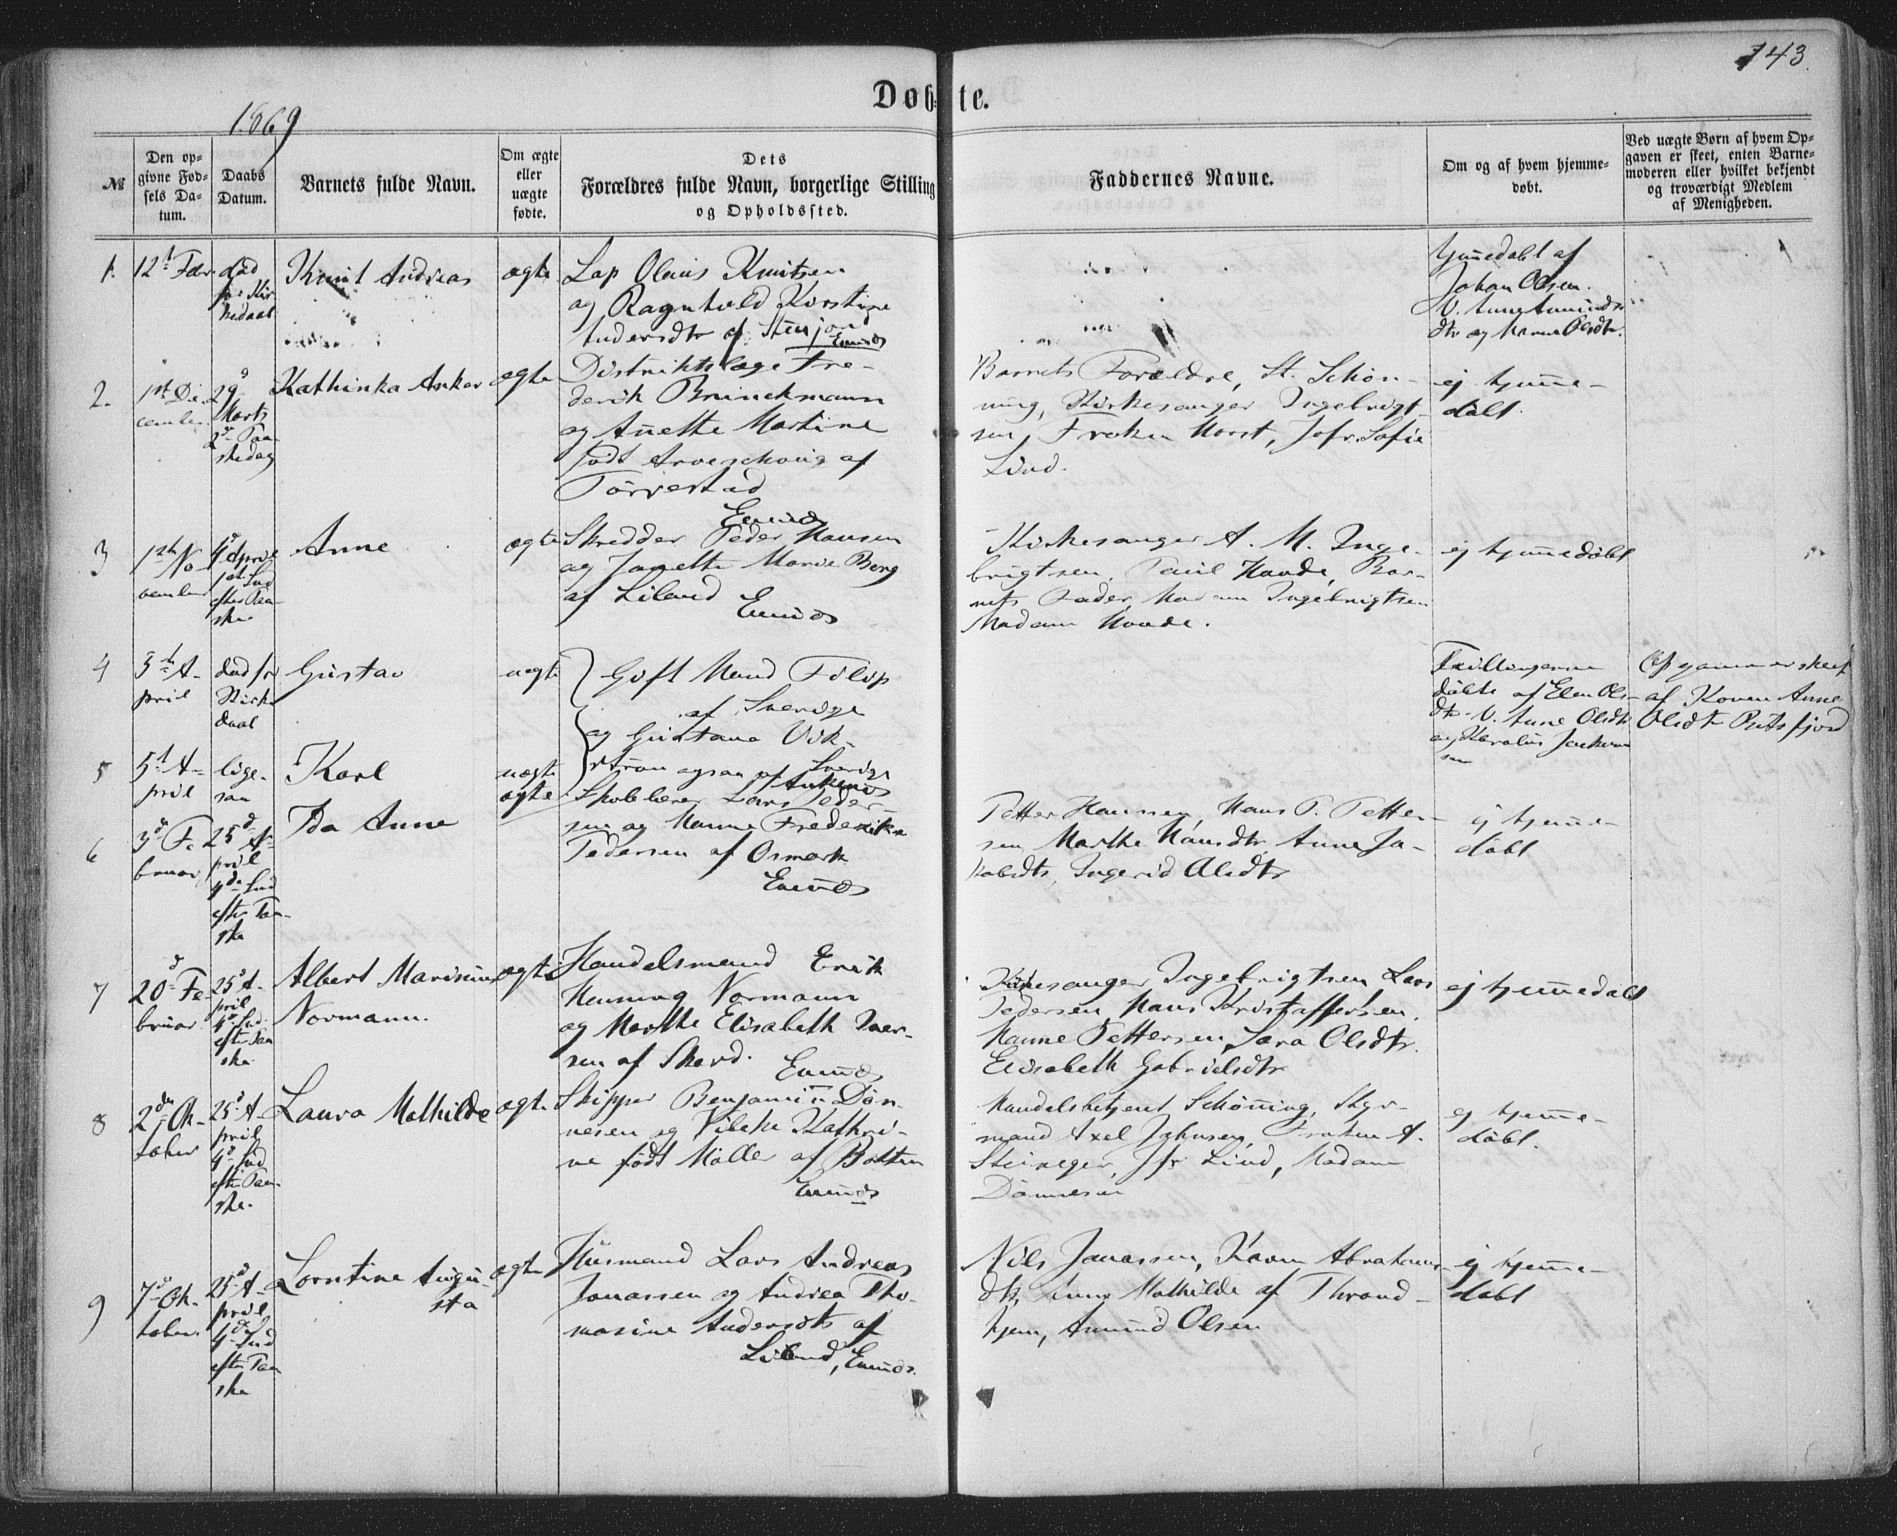 143.
Døbte.
1869
№
Den op-
givne Fød-
sels Da-
tum.
Daabs
Datum.
Barnets fulde Navn.
Om ægte
eller
uægte
fødte.
Dets
Forældres fulde Navn, borgerlige Stilling
og Opholdssted.
Faddernes Navne.
Om og af hvem hjemme-
døbt.
Ved uægte Børn af hvem Op-
gaven er skeet, enten Barne-
moderen eller hvilket bekjendt
og troværdigt Medlem
af Menigheden.
1.
12t
død
før Kir
kedaab
Knut Andreas
ægte
Lap Olaus Knutsen
og Ragnhild Kirstine
Andersdtr af
Evenæs
hjemedøbt af
Johan Olsen.
V. Anne Amunds
dtr og Hanne Olsdtr.
2.
1st De
cember
29d
Marts
2den Paa-
skedag
Kathinka Anker
ægte
Distriktslæge Fre-
derik Brinckmann
og Anette Martine
født Arveschoug af
Tørrestad
Evenæs
Barnets Forældre, St. Schøn-
ning, Kirkesanger Ingebrigt-
sen, Frøken Horst, Jofr. Sofie
Lind.
ej hjemme-
døbt.
3
1ste No
vember
4d April
Snd
efter Paa-
ske
Anne
ægte
Skredder Peder Hansen
og Janette Marie Berg
af Liland
Evenæs
Kirkesanger A. M. Inge-
brigtsen, Paul Haade, Bar-
nets Fader, Madam Ingebrigtsen
Madam Haade.
ej hjemmedøbt
4
3d A-
pril
død før
Kirke
daab
Gustav
uægte
Gift Mand Filip
af Sverige
og Gustava Vik-
strøm ogsaa af Sverige
Tvillingerne
døbte af Elen Ols-
dtr. V. Anne Olsdtr
og
sen
Opgaven er skeet
af Konen Anne
Olsdtr
5
5t A-
pril
lige-
saa
Karl
uægte
6
3d Fe
bruar
25d A-
pril
4de Snd
efter Paa-
ske
Ida Anne
ægte
Ankenæs
Skolelærer Lars Peder-
sen og Hanne Frederikke
Pedersen af Osmark
Evenæs
Petter Hansen, Hans P. Petter-
sen, Marthe Hansdtr, Anne Ja-
kobsdtr, Ingerid Olsdtr
ej hjemme-
døbt
7
20d Fe-
bruar
25d A-
pril
4d Snd.
efter Paa
ske
Albert Marinius
Normann.
ægte
Handelsmand Erik
Henning Normann
og Marthe Elisabeth Iver-
sen af Skard.
Evenæs
Kirkesanger Ingebrigtsen, Lars
Pedersen, Hans Kristoffersen,
Hanne Pettersen, Sara Olsdtr.
Elisabeth Gabrielsdtr
ej hjemmedøbt
8
2den Ok-
tober
25d A-
pril
4d Snd
efter Paa-
ske.
Laura Mathilde
ægte
Skipper Benjamin Døn-
nesen og Vibeke Kathri-
ne født Møller af Botten
Evenæs
Handelsbetjent Schønning, Styr-
mand Axel Johnsen, Frøken A.
Steineger, Jfr Lind, Madam
Dønnesen
ej hjemme-
døbt.
9
7d Ok-
tober.
25d A-
pril
4de Snd
efter Paa
ske
Lorntine Augu-
sta
ægte
Husmand Lars Andreas
Jonassen og Andrea Tho-
masine Andersdtr af
Liland, Evenæs.
Nils Jonassen, Karen Abrahams-
dtr, Anne Mathilde af Thrond-
hjem, Amund Olsen
ej hjemme-
døbt